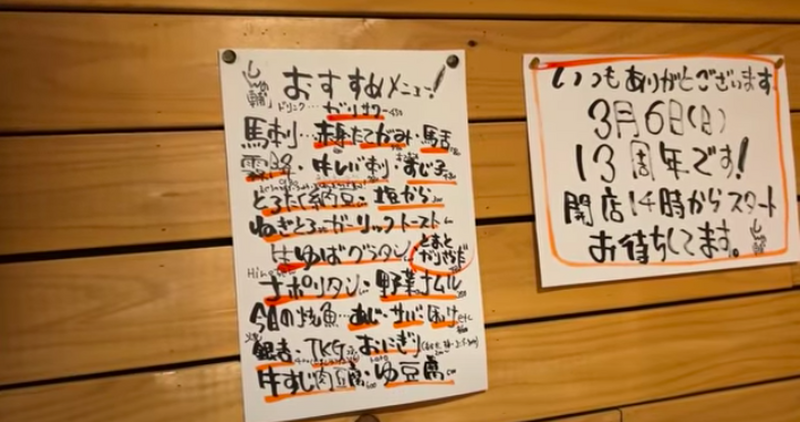 おすすめメニュー!
ドリンク…ガリサワー
馬刺…赤身・たてがみ・馬舌
とろたく納豆・塩から
ねぎとろ・ガーリックトースト
生ゆばグラタン
ナポリタン・野菜ナムル
今日の焼魚…あじ・サバ・ほっけetc
銀杏・TKG・おにぎり
牛すじ肉豆腐・ゆ豆腐
いつもありがとうございます
3月6日(日)
13周年です!
開店14時からスタート
お待ちしてます。